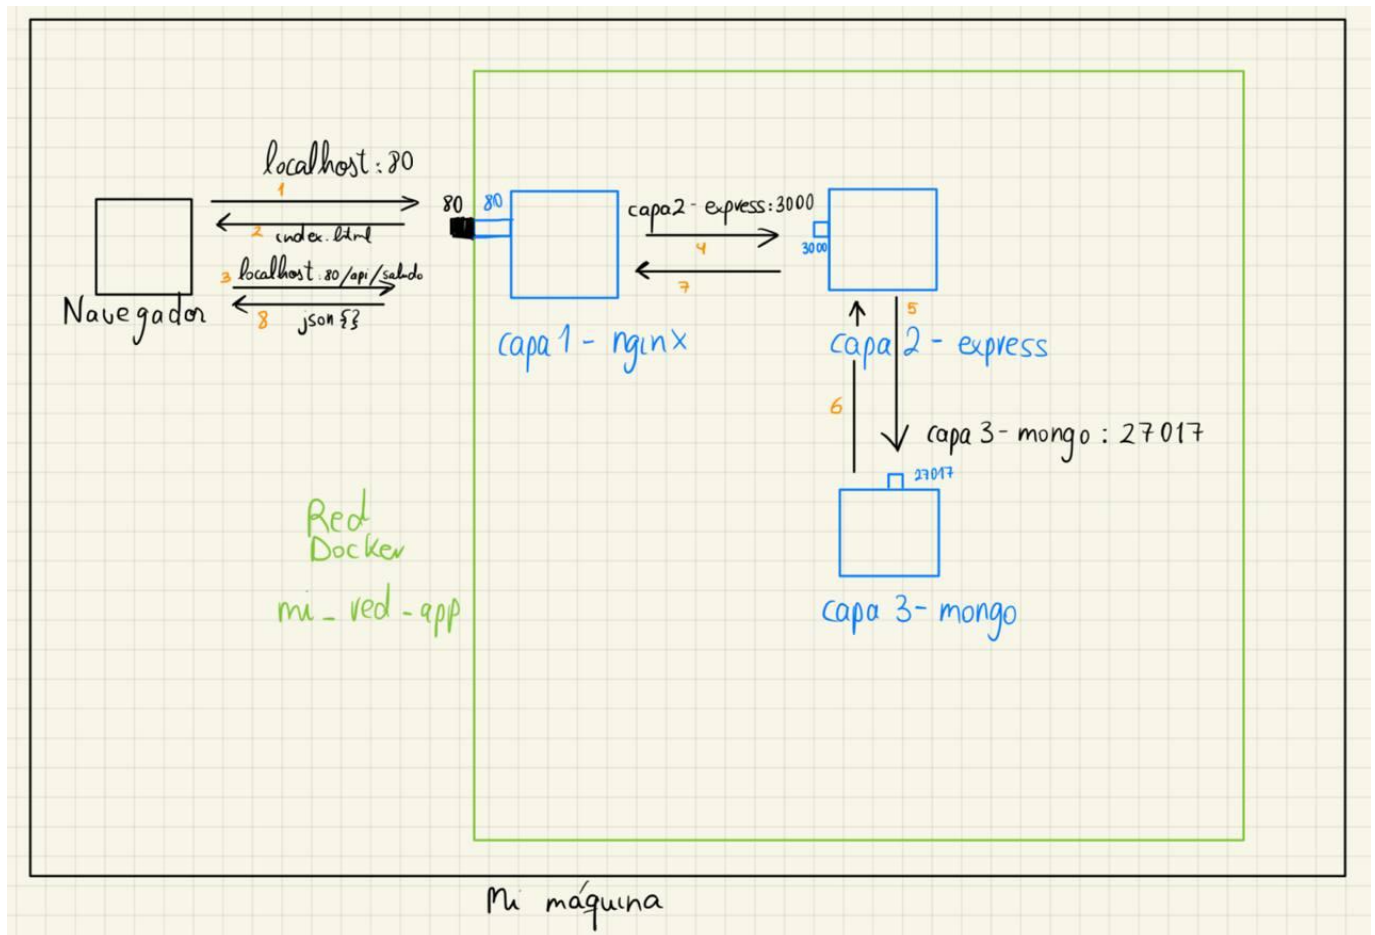 localhost:80
1
2 index.html
3 localhost:80/api/saludo
8 json {}
Navegador
80 80
capa 1 - nginx
capa2 - express:3000
4
7
3000
capa 2 - express
5
6
capa 3 - mongo : 27017
27017
capa 3 - mongo
Red
Docker
mi_red-app
Mi máquina